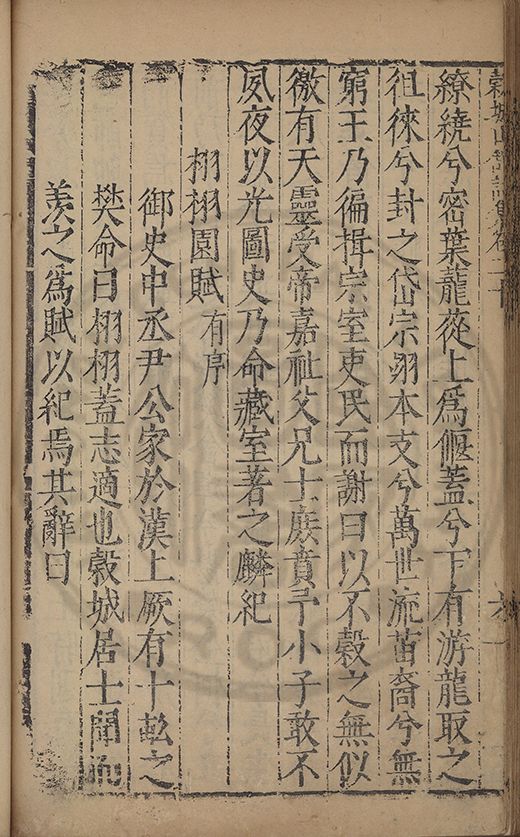 穀城山館詩集卷二十
繚繞兮密葉蘢蓯上為偃蓋兮下有游龍取之
徂徠兮封之岱宗翊本支兮萬世流苗裔兮無
窮王乃徧揖宗室吏民而謝曰以不穀之無似
徼有天靈受帝嘉祉父兄士庶賁予小子敢不
夙夜以光圖史乃命藏室著之麟紀
栩栩園賦有序
御史中丞尹公家於漢上厥有十畝之
樊命曰栩栩蓋志適也穀城居士聞而
羨之為賦以紀焉其辭曰